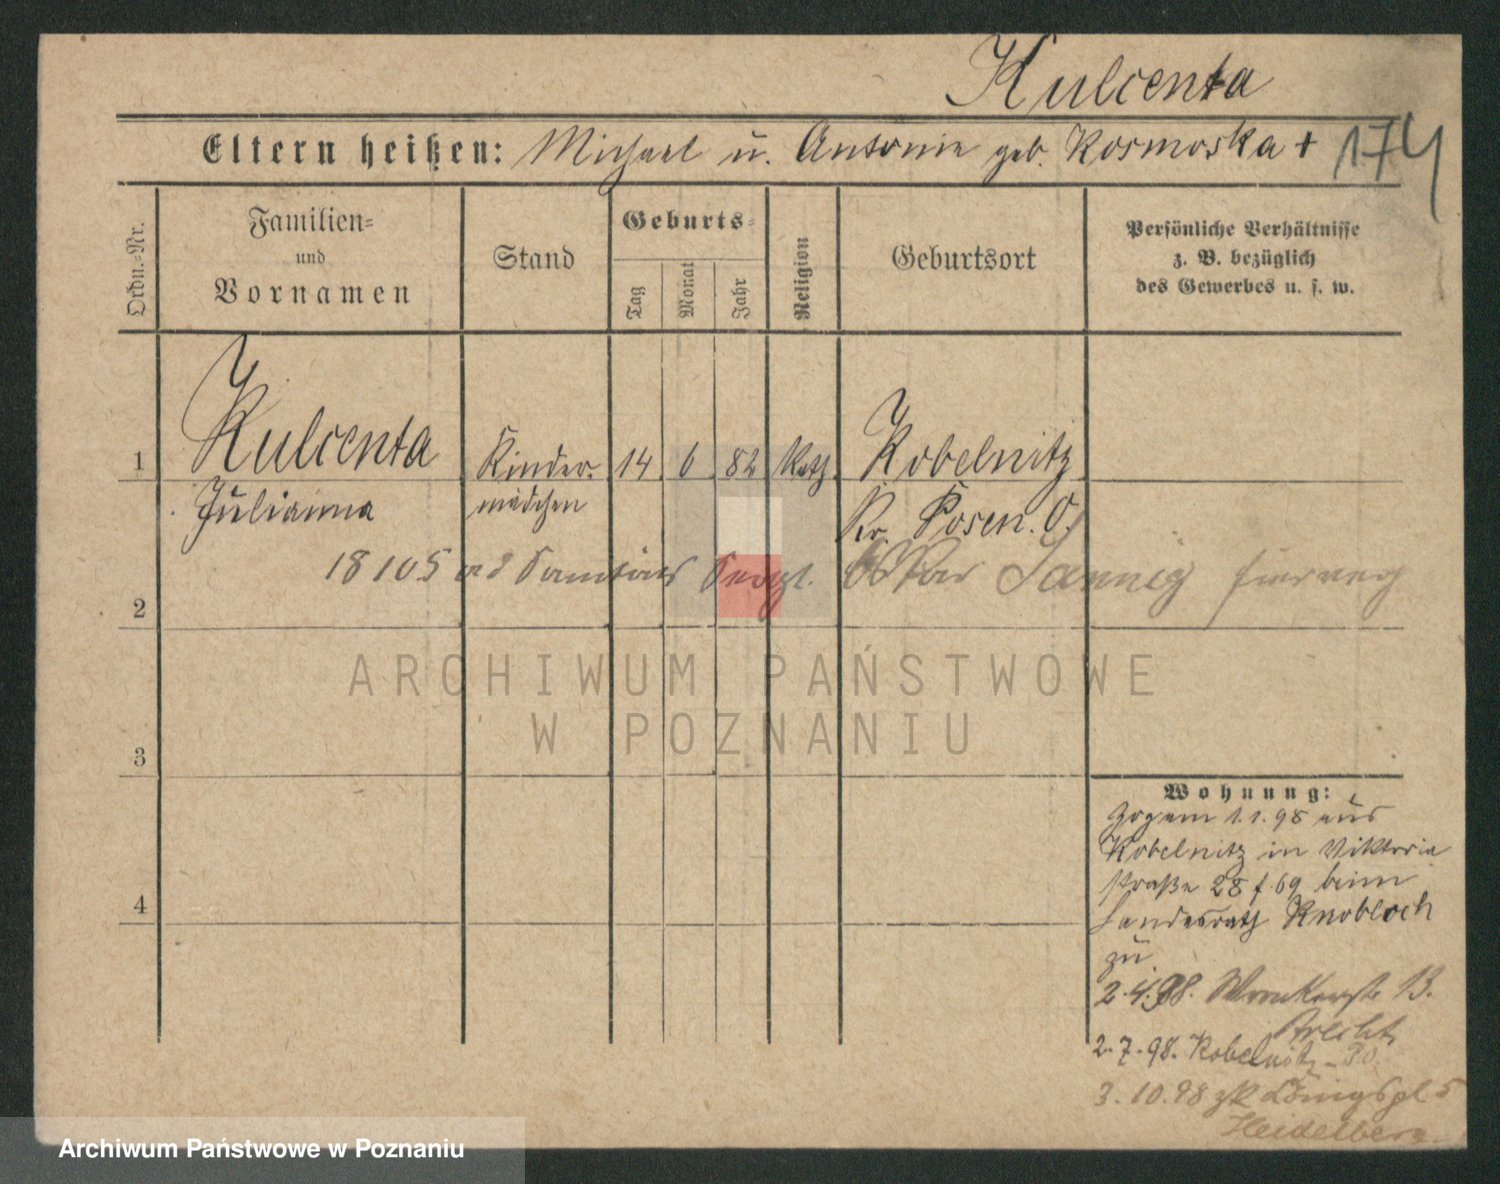 Kulcenta
Eltern heißen: Michael u. Antonie geb. Kosmoska +
174
Ordn.-Nr.
Familien- und Vornamen
Stand
Geburts-
Tag
Monat
Jahr
Religion
Geburtsort
Persönliche Verhältnisse
z. B. bezüglich
des Gewerbes u. s. w.
1 Kulcenta Kinder- 14 6 82 Kath Kobelnitz
Julianna mädchen Kr. Posen. O.
18105
2
ARCHIWUM PAŃSTWOWE
W POZNANIU
3
Wohnung:
Zogem 1.1.98 aus
Kobelnitz in Viktoria
straße 28 f. 69 beim
Landesrath Knobloch
zu
4
2.4.98. Wronkerstr 13.
2.7.98. Kobelnitz P.O.
3.10.98 zk Königspl 5
Heidelberg
Archiwum Państwowe w Poznaniu